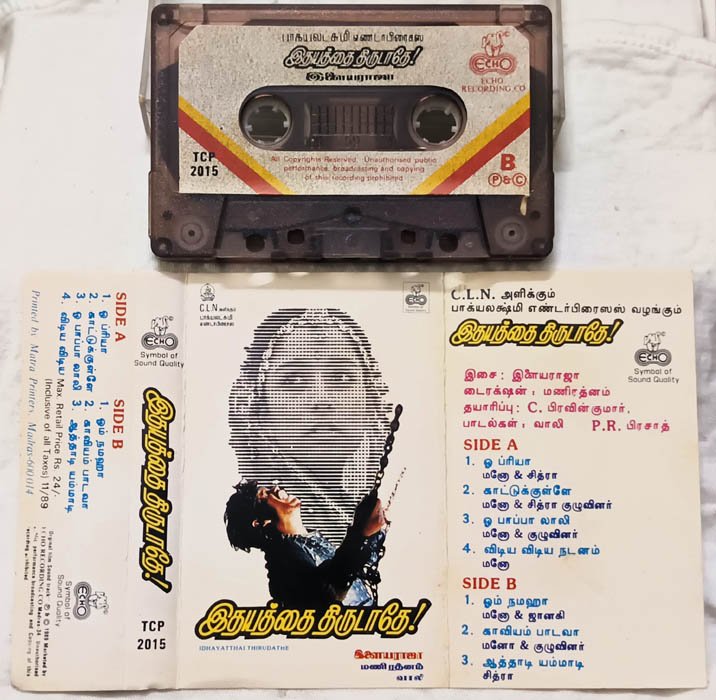 பாக்யலட்சுமி எண்டர்பிரைசஸ்
இதயத்தை திருடாதே!
இளையராஜா
ECHO
ECHO
RECORDING CO
TCP
2015
All Copyrights Reserved. Unauthorised public
performance, broadcasting and copying
of this recording prohibited
B
P & C
SIDE A
1. ஓ ப்ரியா
2. காட்டுக்குள்ளே
3. ஓ பாப்பா லாலி
4. விடிய விடிய
SIDE B
1. ஓம் நமஹா
2. காவியம் பாடவா
3. ஆத்தாடி யம்மாடி
ECHO
Symbol of
Sound Quality
Max. Retail Price Rs. 24/-
(Inclusive of all Taxes) 11/89
Printed by Matra Printers, Madras-600 014
இதயத்தை திருடாதே!
Original film Sound track - P & C 1989 Marketed by
ECHO RECORDING CO Madras-34. Unauthorised
public performance broadcasting and Copying of this
recording prohibited.
ECHO
Symbol of
Sound Quality
TCP
2015
C.L.N. அளிக்கும்
பாக்யலக்சுமி
எண்டர்பிரைசஸ்
ECHO
இதயத்தை திருடாதே!
IDHAYATTHAI THIRUDATHE
இளையராஜா
மணிரத்னம்
வாலி
C.L.N. அளிக்கும்
பாக்யலக்ஷ்மி எண்டர்பிரைஸஸ் வழங்கும்
இதயத்தை திருடாதே!
ECHO
Symbol of
Sound Quality
இசை : இளையராஜா
டைரக்ஷன் : மணிரத்னம்
தயாரிப்பு : C. பிரவின்குமார்,
பாடல்கள் : வாலி P.R. பிரசாத்
SIDE A
1. ஓ ப்ரியா
மனோ & சித்ரா
2. காட்டுக்குள்ளே
மனோ & சித்ரா குழுவினர்
3. ஓ பாப்பா லாலி
மனோ & குழுவினர்
4. விடிய விடிய நடனம்
மனோ
SIDE B
1. ஓம் நமஹா
மனோ & ஜானகி
2. காவியம் பாடவா
மனோ & குழுவினர்
3. ஆத்தாடி யம்மாடி
சித்ரா